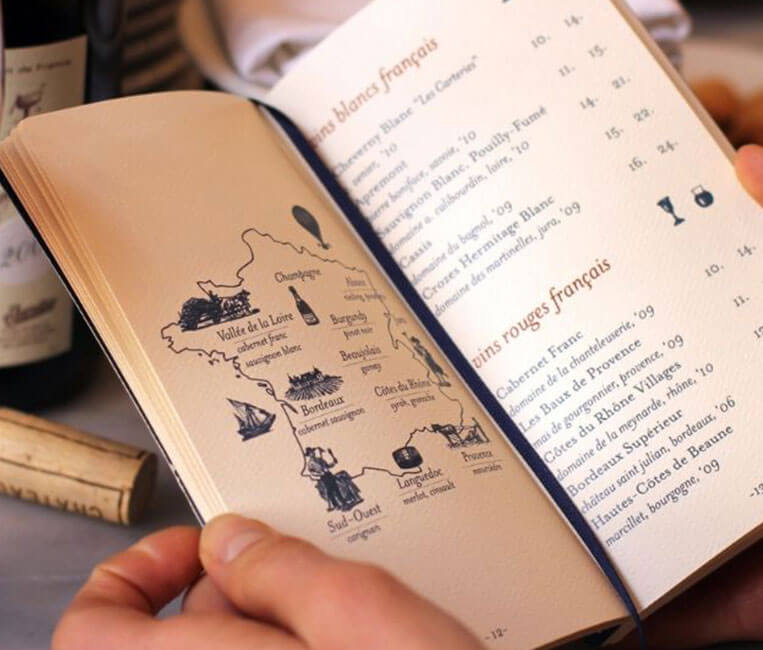 Champagne
Alsace
Vallée de la Loire
cabernet franc
sauvignon blanc
Burgundy
pinot noir
Beaujolais
gamay
Bordeaux
cabernet sauvignon
Côtes du Rhône
syrah, grenache
Languedoc
merlot, cinsault
Provence
Sud-Ouest
-12-
vins blancs français
Cheverny Blanc "Les Carteries"
10. 14.
'10
11. 15.
Apremont
14. 21.
pierre boniface, savoie, '10
Sauvignon Blanc, Pouilly-Fumé
15. 22.
domaine a. cailbourdin, loire, '10
Cassis
16. 24.
domaine du bagnol, '09
Crozes Hermitage Blanc
domaine des martinelles, jura, '09
vins rouges français
Cabernet Franc
10. 14.
domaine de la chanteleuserie, '09
Les Baux de Provence
11.
mas de gourgonnier, provence, '09
Côtes du Rhône Villages
domaine de la meynarde, rhône, '10
Bordeaux Supérieur
château saint julian, bordeaux, '06
Hautes-Côtes de Beaune
marcillet, bourgogne, '09
-13
CHATEAU